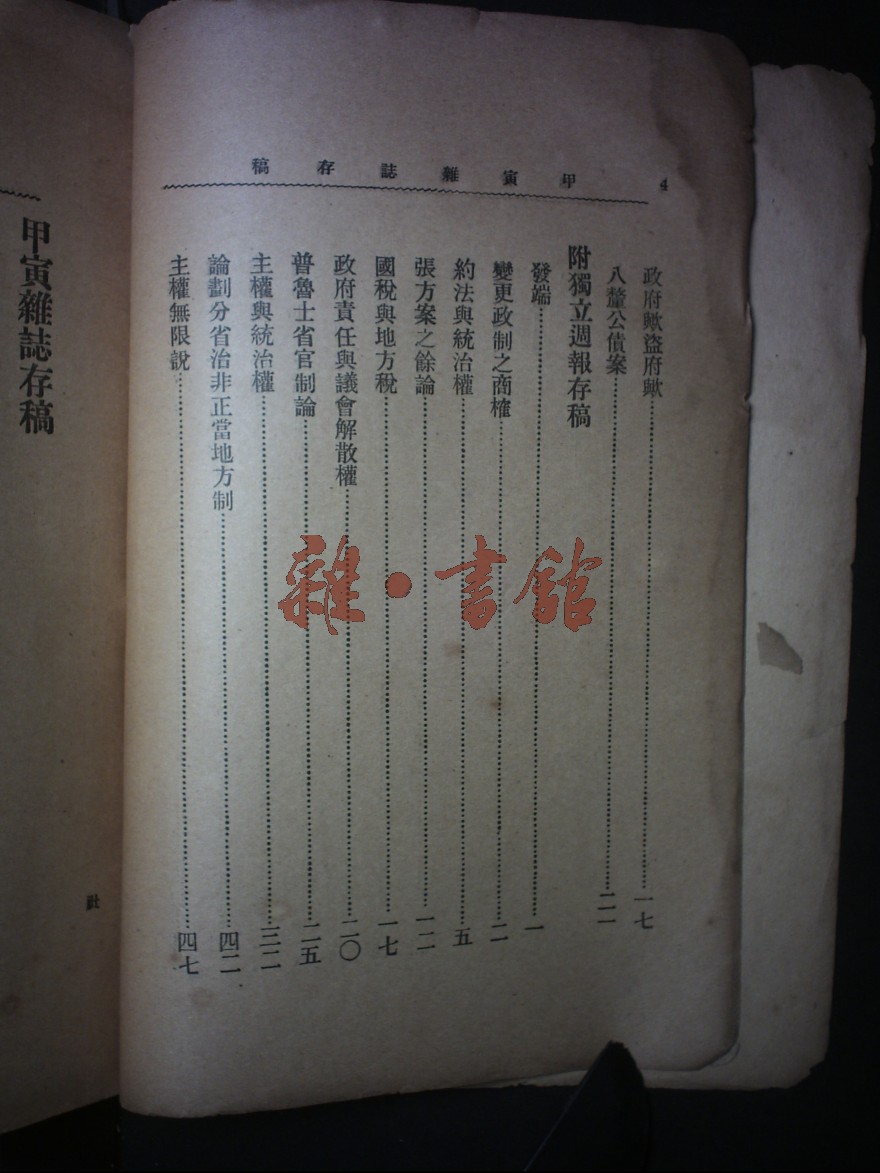 4 甲寅雜誌存稿
政府歟盜府歟……一七
八釐公債案……二一
附獨立週報存稿
發端……一
變更政制之商榷……二
約法與統治權……五
張方案之餘論……一二
國稅與地方稅……一七
政府責任與議會解散權……二〇
普魯士省官制論……二五
主權與統治權……三二
論劃分省治非正當地方制……四二
主權無限說……四七
甲寅雜誌存稿
雜·書館